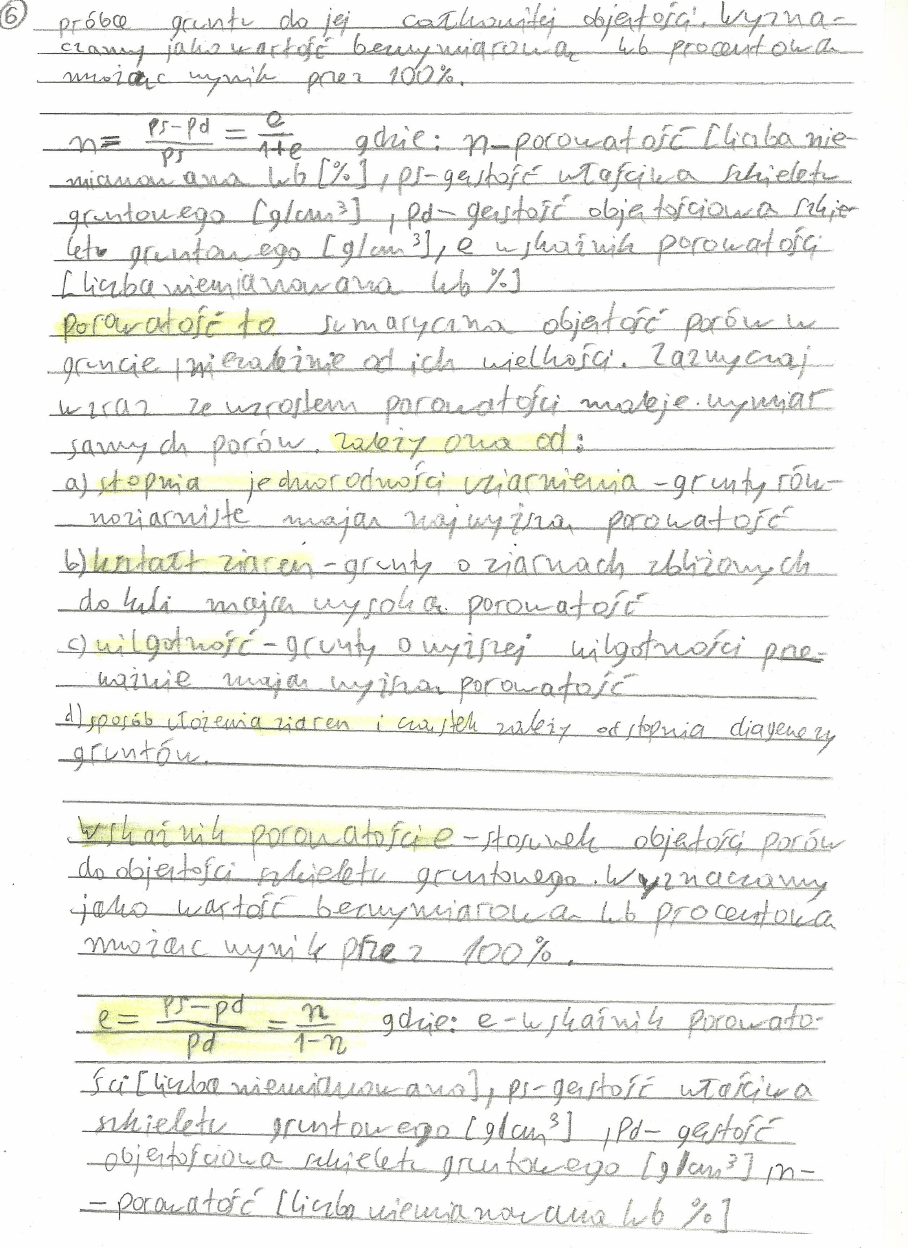 6 próbce gruntu do jej całkowitej objętości. Wyzna-
czamy jako wartość bezwymiarową lub procentową
mnożąc wynik przez 100%.
n = ρs-ρd/ρs = e/1+e gdzie: n-porowatość [liczba nie-
mianowana lub [%], ρs-gęstość właściwa szkieletu
gruntowego [g/cm³], ρd- gęstość objętościowa szkie-
letu gruntowego [g/cm³], e wskaźnik porowatości
[liczba niemianowana lub %]
porowatość to sumaryczna objętość porów w
gruncie, niezależnie od ich wielkości. Zazwyczaj
wraz ze wzrostem porowatości maleje wymiar
samych porów. zależy ona od:
a) stopnia jednorodności uziarnienia - grunty rów-
noziarniste mają najwyższą porowatość
b) kształt ziaren - grunty o ziarnach zbliżonych
do kuli mają wysoką porowatość
c) wilgotność - grunty o wyższej wilgotności prze-
ważnie mają wyższą porowatość
d) sposób ułożenia ziaren i cząstek zależy od stopnia diagenezy
gruntów.
Wskaźnik porowatości e - stosunek objętości porów
do objętości szkieletu gruntowego. Wyznaczamy
jako wartość bezwymiarową lub procentową
mnożąc wynik przez 100%.
e = ρs-ρd/ρd = n/1-n gdzie: e-wskaźnik porowato-
ści [liczba niemianowana], ρs-gęstość właściwa
szkieletu gruntowego [g/cm³], ρd- gęstość
objętościowa szkieletu gruntowego [g/cm³], n-
- porowatość [liczba niemianowana lub %]